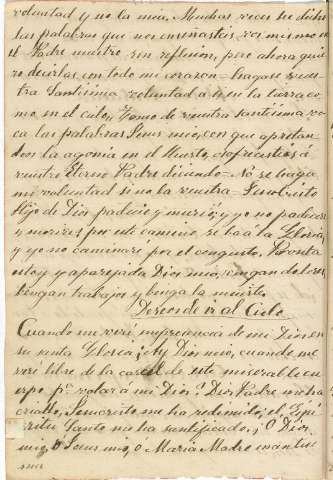 voluntad y no la mia. Muchas veces he dicho
las palabras que nos enseñasteis vos mismo en
el Padre nuestro sin reflexion, pero ahora quie
ro decirlas con todo mi corazon = hagase vues
tra Santisima voluntad asi en la tierra co
mo en el cielo. Tomo de vuestra santisima bo
ca las palabras Jesus mio, con que apretan
dos la agonia en el Huerto, ofrecisteis á
vuestro Eterno Padre diciendo = No se haga
mi voluntad si no la vuestra = Jesucristo
Hijo de Dios padeció y murió; y yo no padecere
y moriré; por este camino se ba á la Gloria
y yo no caminaré por el con gusto. Pronta
estoy y aparejada Dios mio, vengan dolores,
vengan trabajos y benga la muerte.
Deseos de ir al Cielo
Cuando me veré en presencia de mi Dios en
su santa Gloria; Ay Dios mio, cuando me
veré libre de la carcel de este miserable cu
erpo pª. volar á mi Dios? Dios Padre me ha
criado, Jesucristo me ha redimido, el Espi
ritu Santo me ha santificado. ¡O Dios
mio, ó Jesus mio, ó Maria Madre
mia